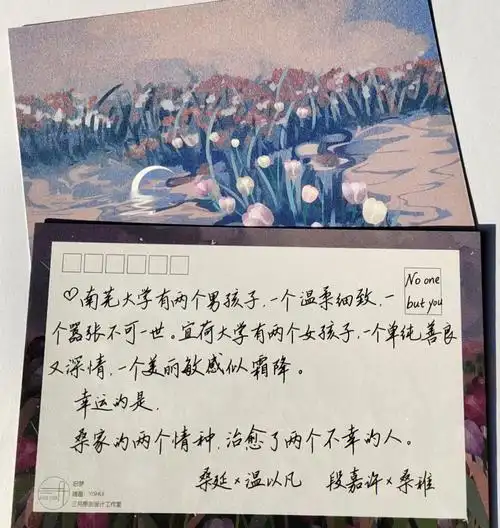 No one
but you
♡南芜大学有两个男孩子,一个温柔细致,一
个嚣张不可一世。宜荷大学有两个女孩子,一个单纯善良
又深情,一个美丽敏感似霜降。
幸运的是,
桑家的两个情种,治愈了两个不幸的人。
桑延×温以凡 段嘉许×桑稚
旧梦
插画:YISHUI
三月原创设计工作室